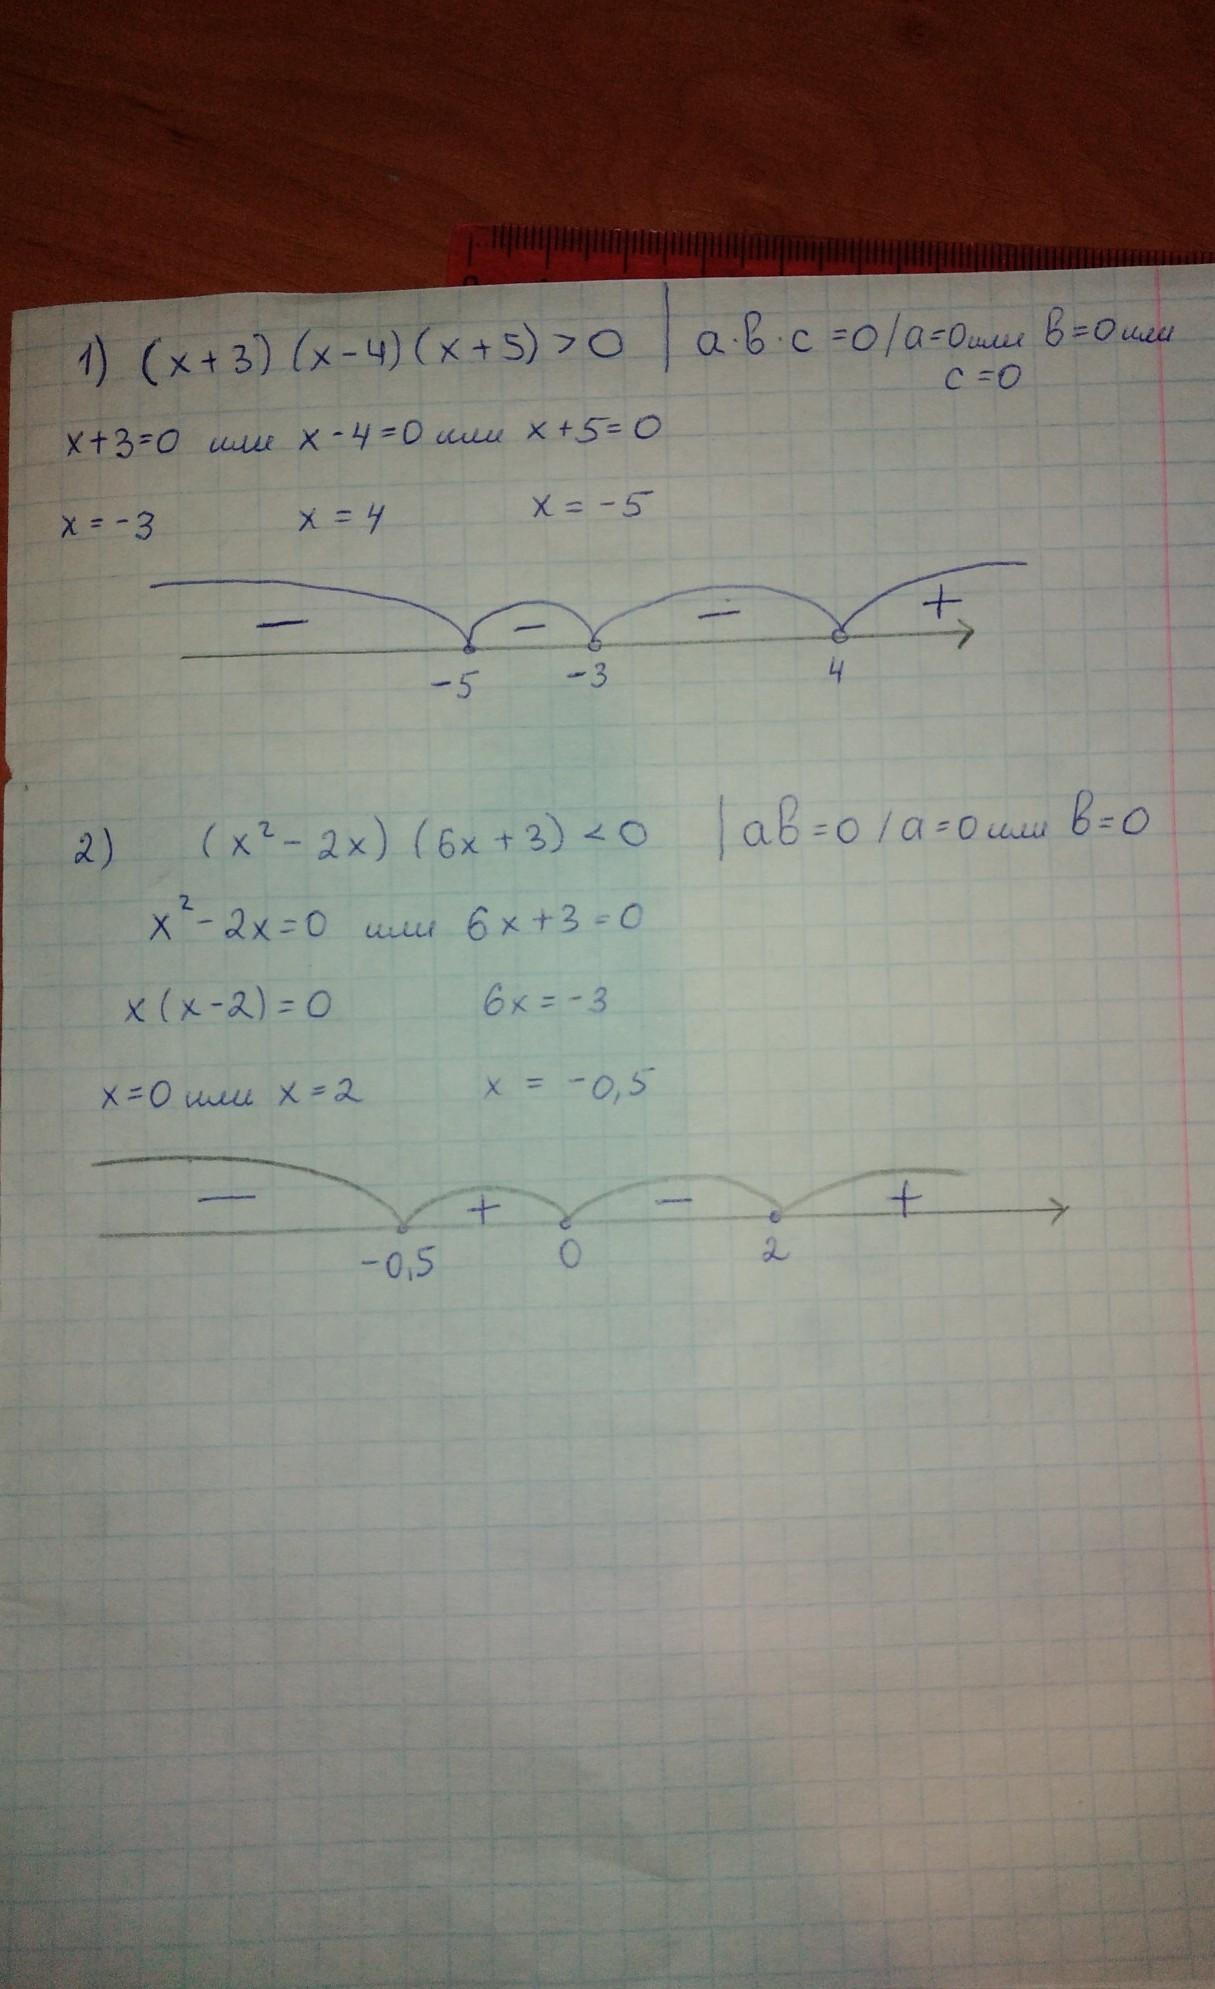 1) (x+3) (x-4) (x+5) > 0 | a·b·c =0 / a=0 или b=0 или
c=0
x+3=0 или x-4=0 или x+5=0
x=-3 x=4 x=-5
— — — +
-5 -3 4
2) (x²-2x) (6x+3) < 0 | ab=0 / a=0 или b=0
x²-2x=0 или 6x+3=0
x(x-2)=0 6x=-3
x=0 или x=2 x = -0,5
— + — +
-0,5 0 2